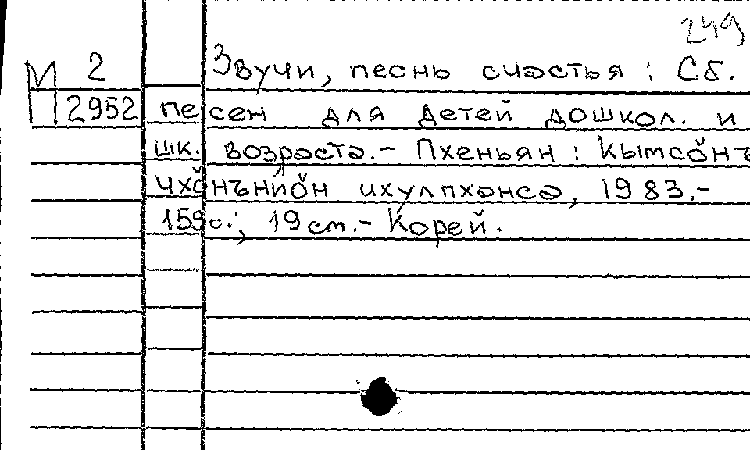 249
М 2 Звучи, песнь счастья : Сб.
2952 песен для детей дошкол. и
шк. возраста.- Пхеньян : Кымсŏнъ
чхŏнънйŏн ихулпхансa, 1983.-
159с.; 19см.- Корей.